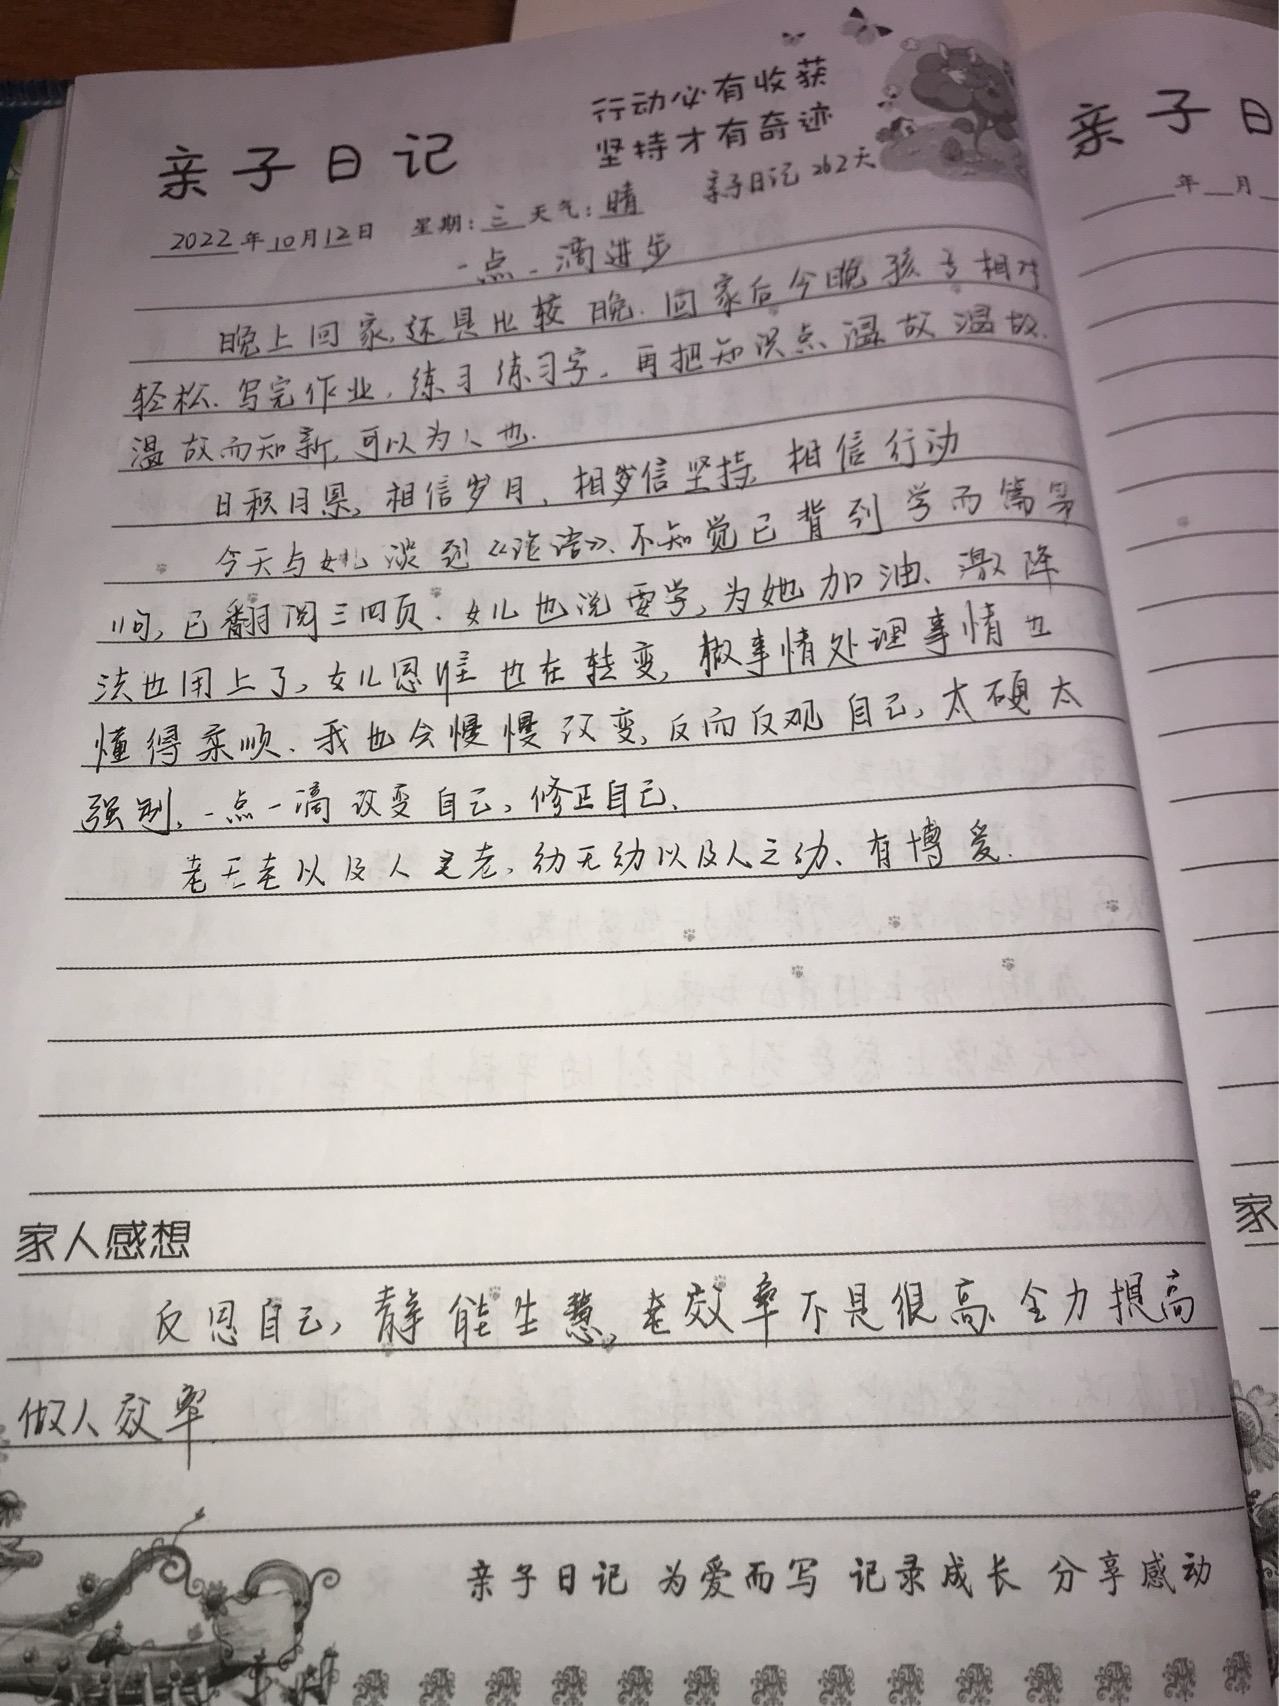 行动必有收获
坚持才有奇迹
亲子日记
亲子日记262天
2022年10月12日 星期:三 天气:晴
一点一滴进步
晚上回家,还是比较晚.回家后今晚孩子相对
轻松.写完作业,练习练习字.再把知识点温故温故.
温故而知新,可以为人也.
日积月累,相信岁月、相信坚持,相信行动
今天与女儿谈到《论语》、不知觉已背到学而篇第
11句,已翻阅三四页.女儿也说要学,为她加油、激降
法也用上了,女儿思维也在转变,做事情处理事情也
懂得柔顺、我也会慢慢改变,反而反观自己,太硬太
强制,一点一滴改变自己,修正自己、
老无老以及人之老,幼无幼以及人之幼、有博爱.
家人感想
反思自己,静能生慧,老效率不是很高、全力提高
做人效率
亲子日记 为爱而写 记录成长 分享感动
亲子日
年 月
家